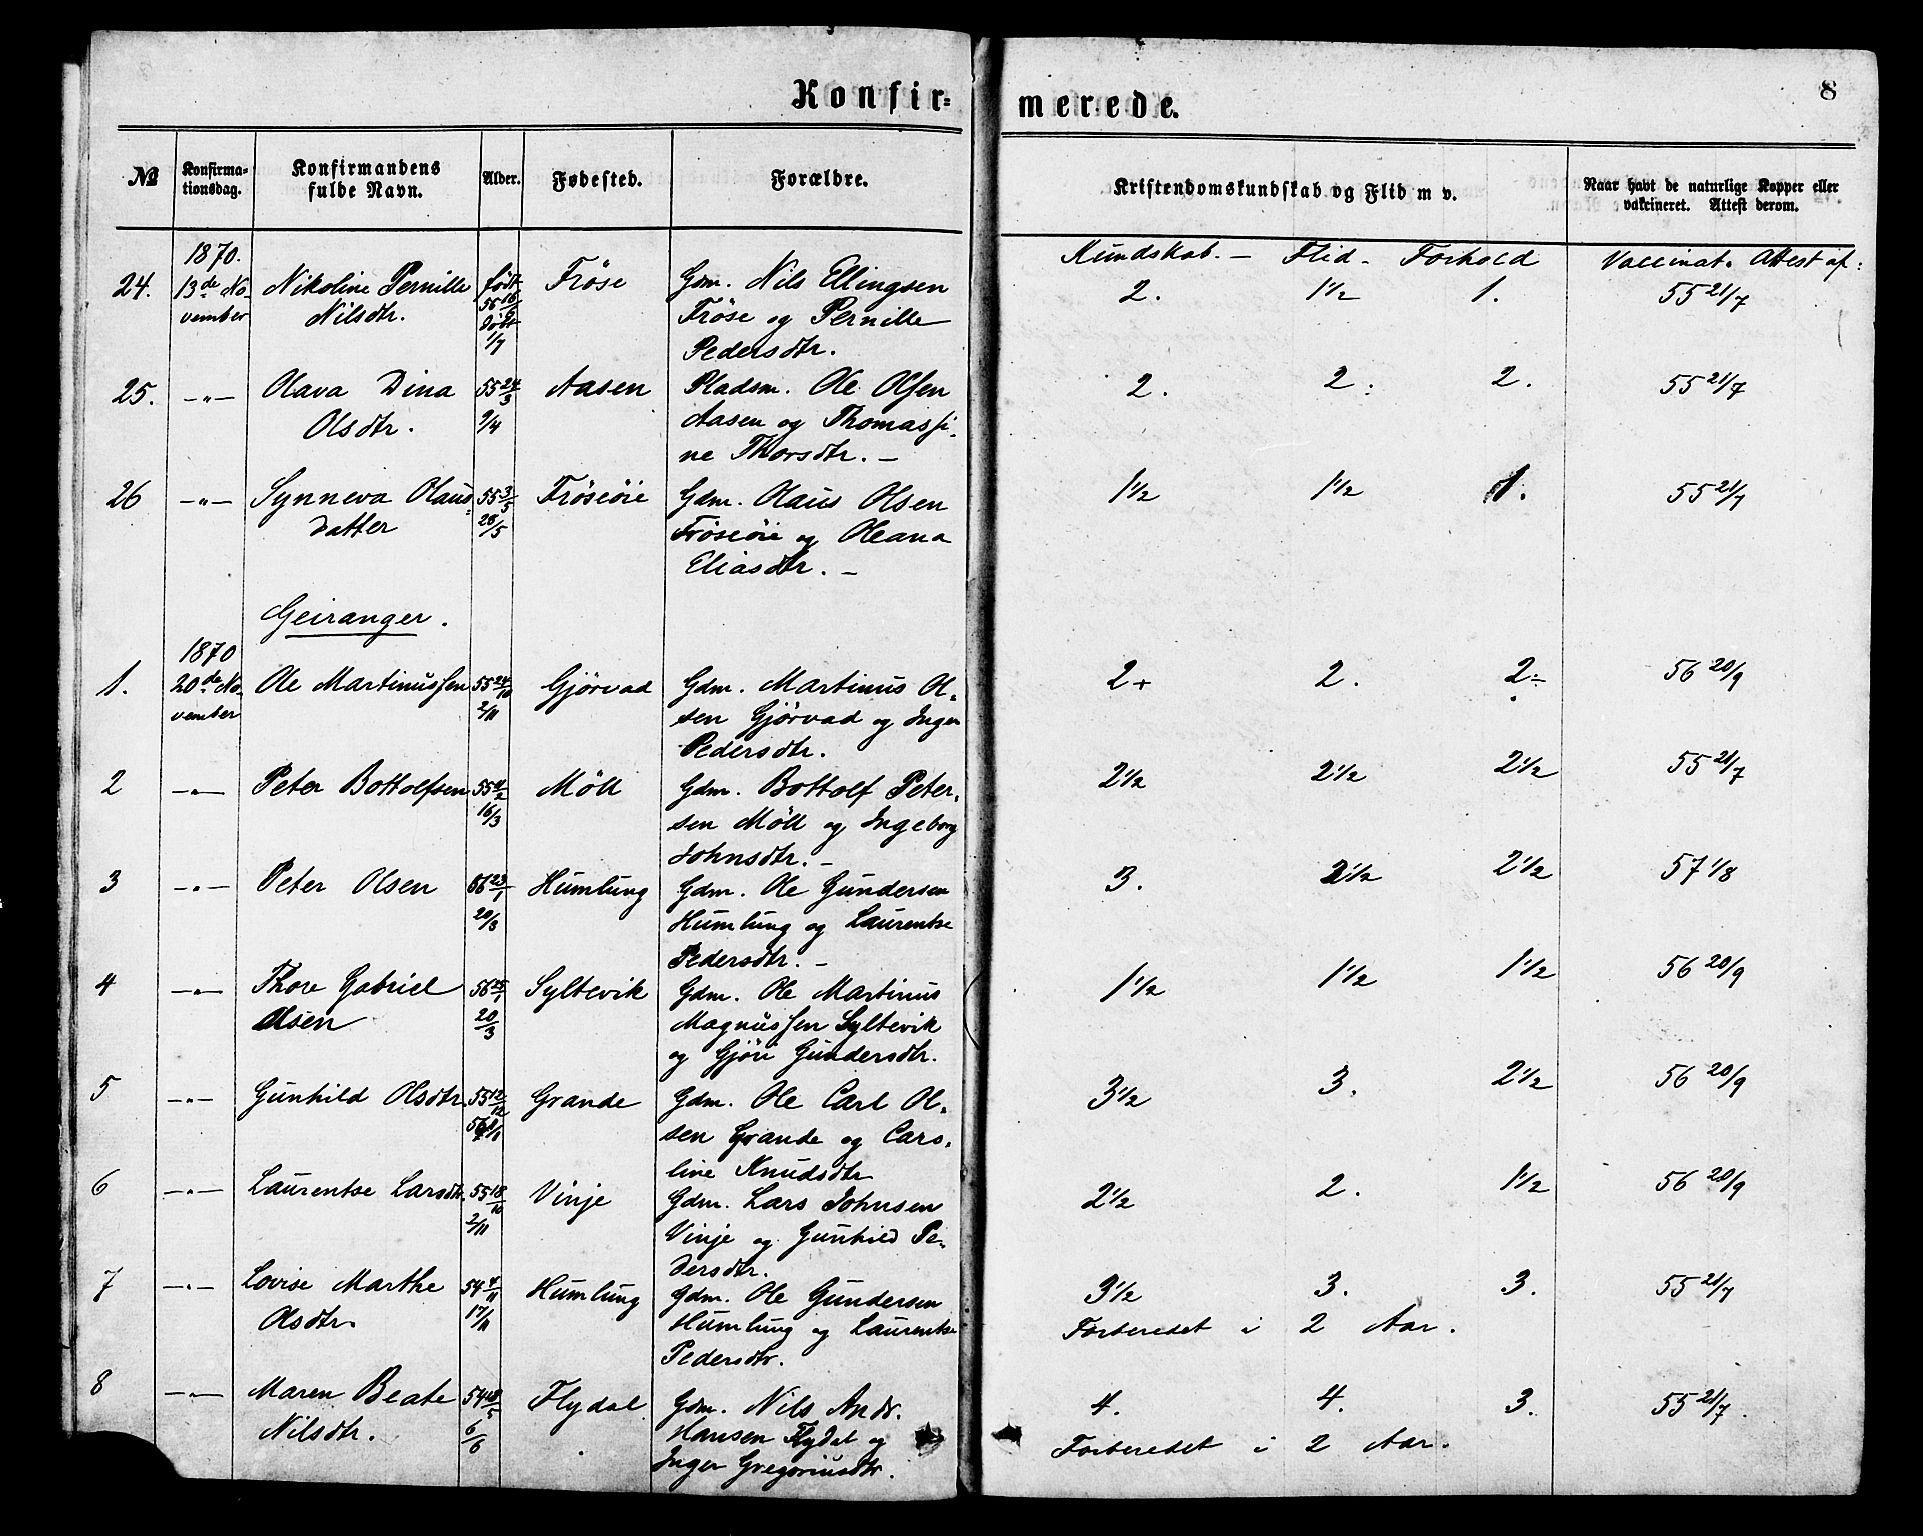 Konfir=
merede.
8
№ Konfirma=tionsdag. Konfirmandens fulde Navn. Alder. Fødested. Forældre. Kristendomskundskab og Flid m v. Naar havt de naturlige Kopper eller vakcineret. Attest derom.
Kundskab. — Flid — Forhold Vaccinat. Attest af:
1870.
24. 13de No Nikoline Pernille født Fröse Gdm. Nils Ellingsen 2. 1½ 1. 55 21/7
vember Nilsdtr. 55 16/6 Fröse og Pernille
døbt 1/7 Pedersdtr.
25. —"— Olava Dina 55 24/3 Aasen Pladsm. Ole Olsen 2. 2. 2. 55 21/7
Olsdtr. 9/4 Aasen og Thomassi=
ne Thorsdtr. —
26 —"— Synneva Olaus= 55 3/5 Fröseöie Gdm. Olaus Olsen 1½ 1½ 1. 55 21/7
datter 28/5 Fröseöie og Oleana
Eliasdtr. —
Geiranger.
1870
1. 20de No Ole Martinussen 55 24/10 Gjörvad Gdm. Martinus Ol= 2+ 2. 2÷ 56 20/9
vember 2/11 sen Gjörvad og Inger
Pedersdtr.
2 —"— Peter Bottolfsen 55 4/2 Möll Gdm. Bottolf Peter= 2½ 2½ 2½ 55 21/7
16/3 sen Möll og Ingeborg
Johnsdtr. —
3 —"— Peter Olsen 56 23/1 Humlung Gdm. Ole Gundersen 3. 2½ 2½ 57 1/8
20/3 Humlung og Laurentse
Pedersdtr. —
4 —"— Thore Gabriel 56 25/1 Syltevik Gdm. Ole Martinus 1½ 1½ 1½ 56 20/9
Olsen 20/3 Magnussen Syltevik
og Gjöri Gundersdtr.
5 —"— Gunhild Olsdtr. 55 12/12 Grande Gdm. Ole Carl Ol= 3½ 3. 2½ 56 20/9
sen Grande og Caro=
line Knudsdtr
6 —"— Laurentse Larsdtr. 55 18/10 Vinje Gdm. Lars Johnsen 2½ 2. 1½ 56 20/9
2/11 Vinje og Gunhild Pe=
dersdtr.
7 —"— Lovise Marthe 54 4/11 Humlung Gdm. Ole Gundersen 3½ 3. 3. 55 21/7
Olsdtr. 17/11 Humlung og Laurentse Forberedet i 2 Aar.
Pedersdtr.
8 —"— Maren Beate 54 18/5 Flydal Gdm. Nils Andr. 4. 4. 3. 55 21/7
Nilsdtr. 6/6 Hansen Flydal og Forberedet i 2 Aar.
Inger Gregoriusdtr.